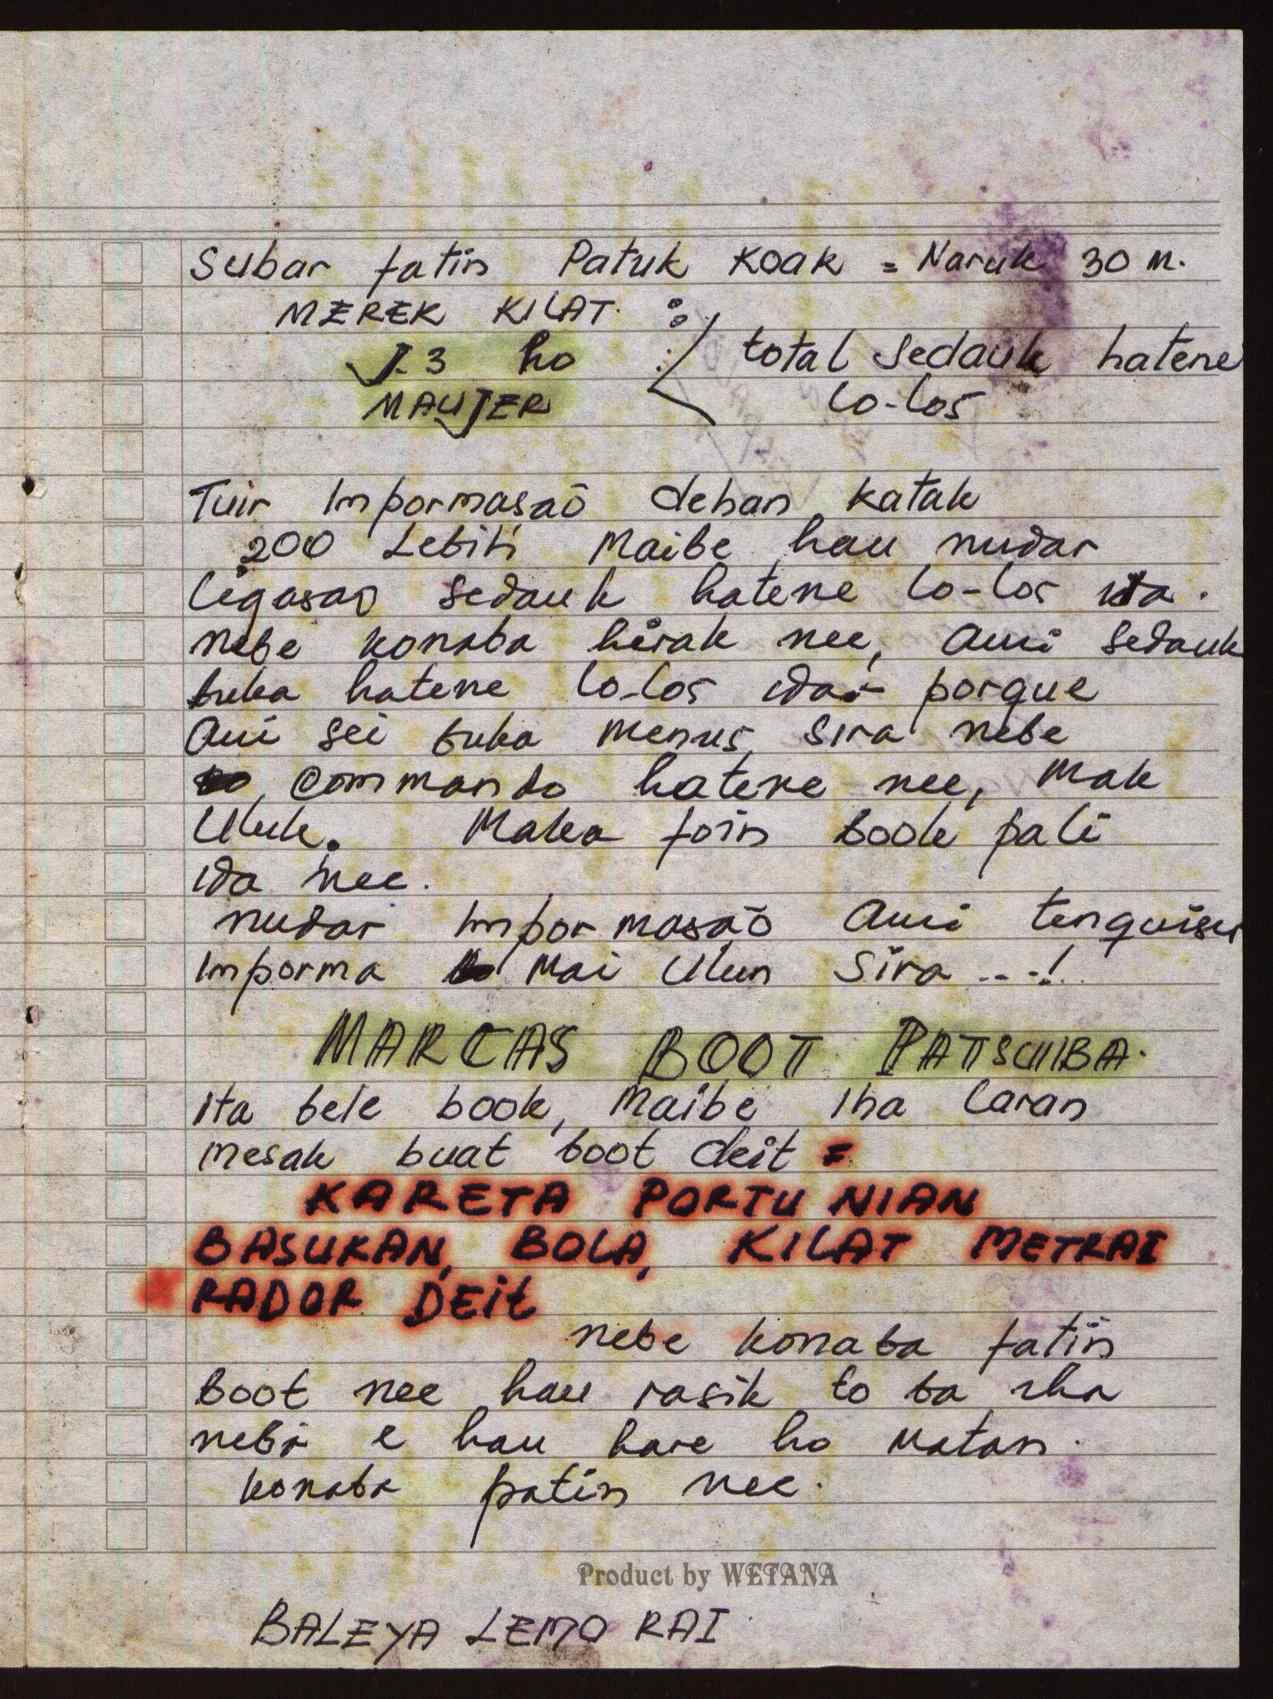 Subar fatin Patuk KOAK = Naruk 30 m.
MEREK KILAT :
J.3 ho total sedauk hatene
MAUJER lo-los
Tuir Impormasaõ dehan katak
200 Lebih Maibe hau nudar
Ligasao sedauk hatene lo-los ida.
nebe konaba hirak nee, Ami sedauk
buka hatene lo-los ida porque
Ami sei buka menus sira nebe
commando hatene nee, Mak
Uluk. Maka foin Book fali
ida nee.
nudar Impormasaõ Ami tenquisir
Imporma Mai Ulun Sira ...!
MARCAS BOOT PATSUIBA.
Ita bele book, Maibe iha laran
mesak buat boot deit =
KARETA PORTU NIAN
BASUKAN, BOLA, KILAT METRAI
RADOR DEit
nebe konaba fatin
Boot nee hau rasik to ba iha
neba e hau hare ho matan.
konaba patin nee.
Product by WETANA
BALEYA LEMO RAI